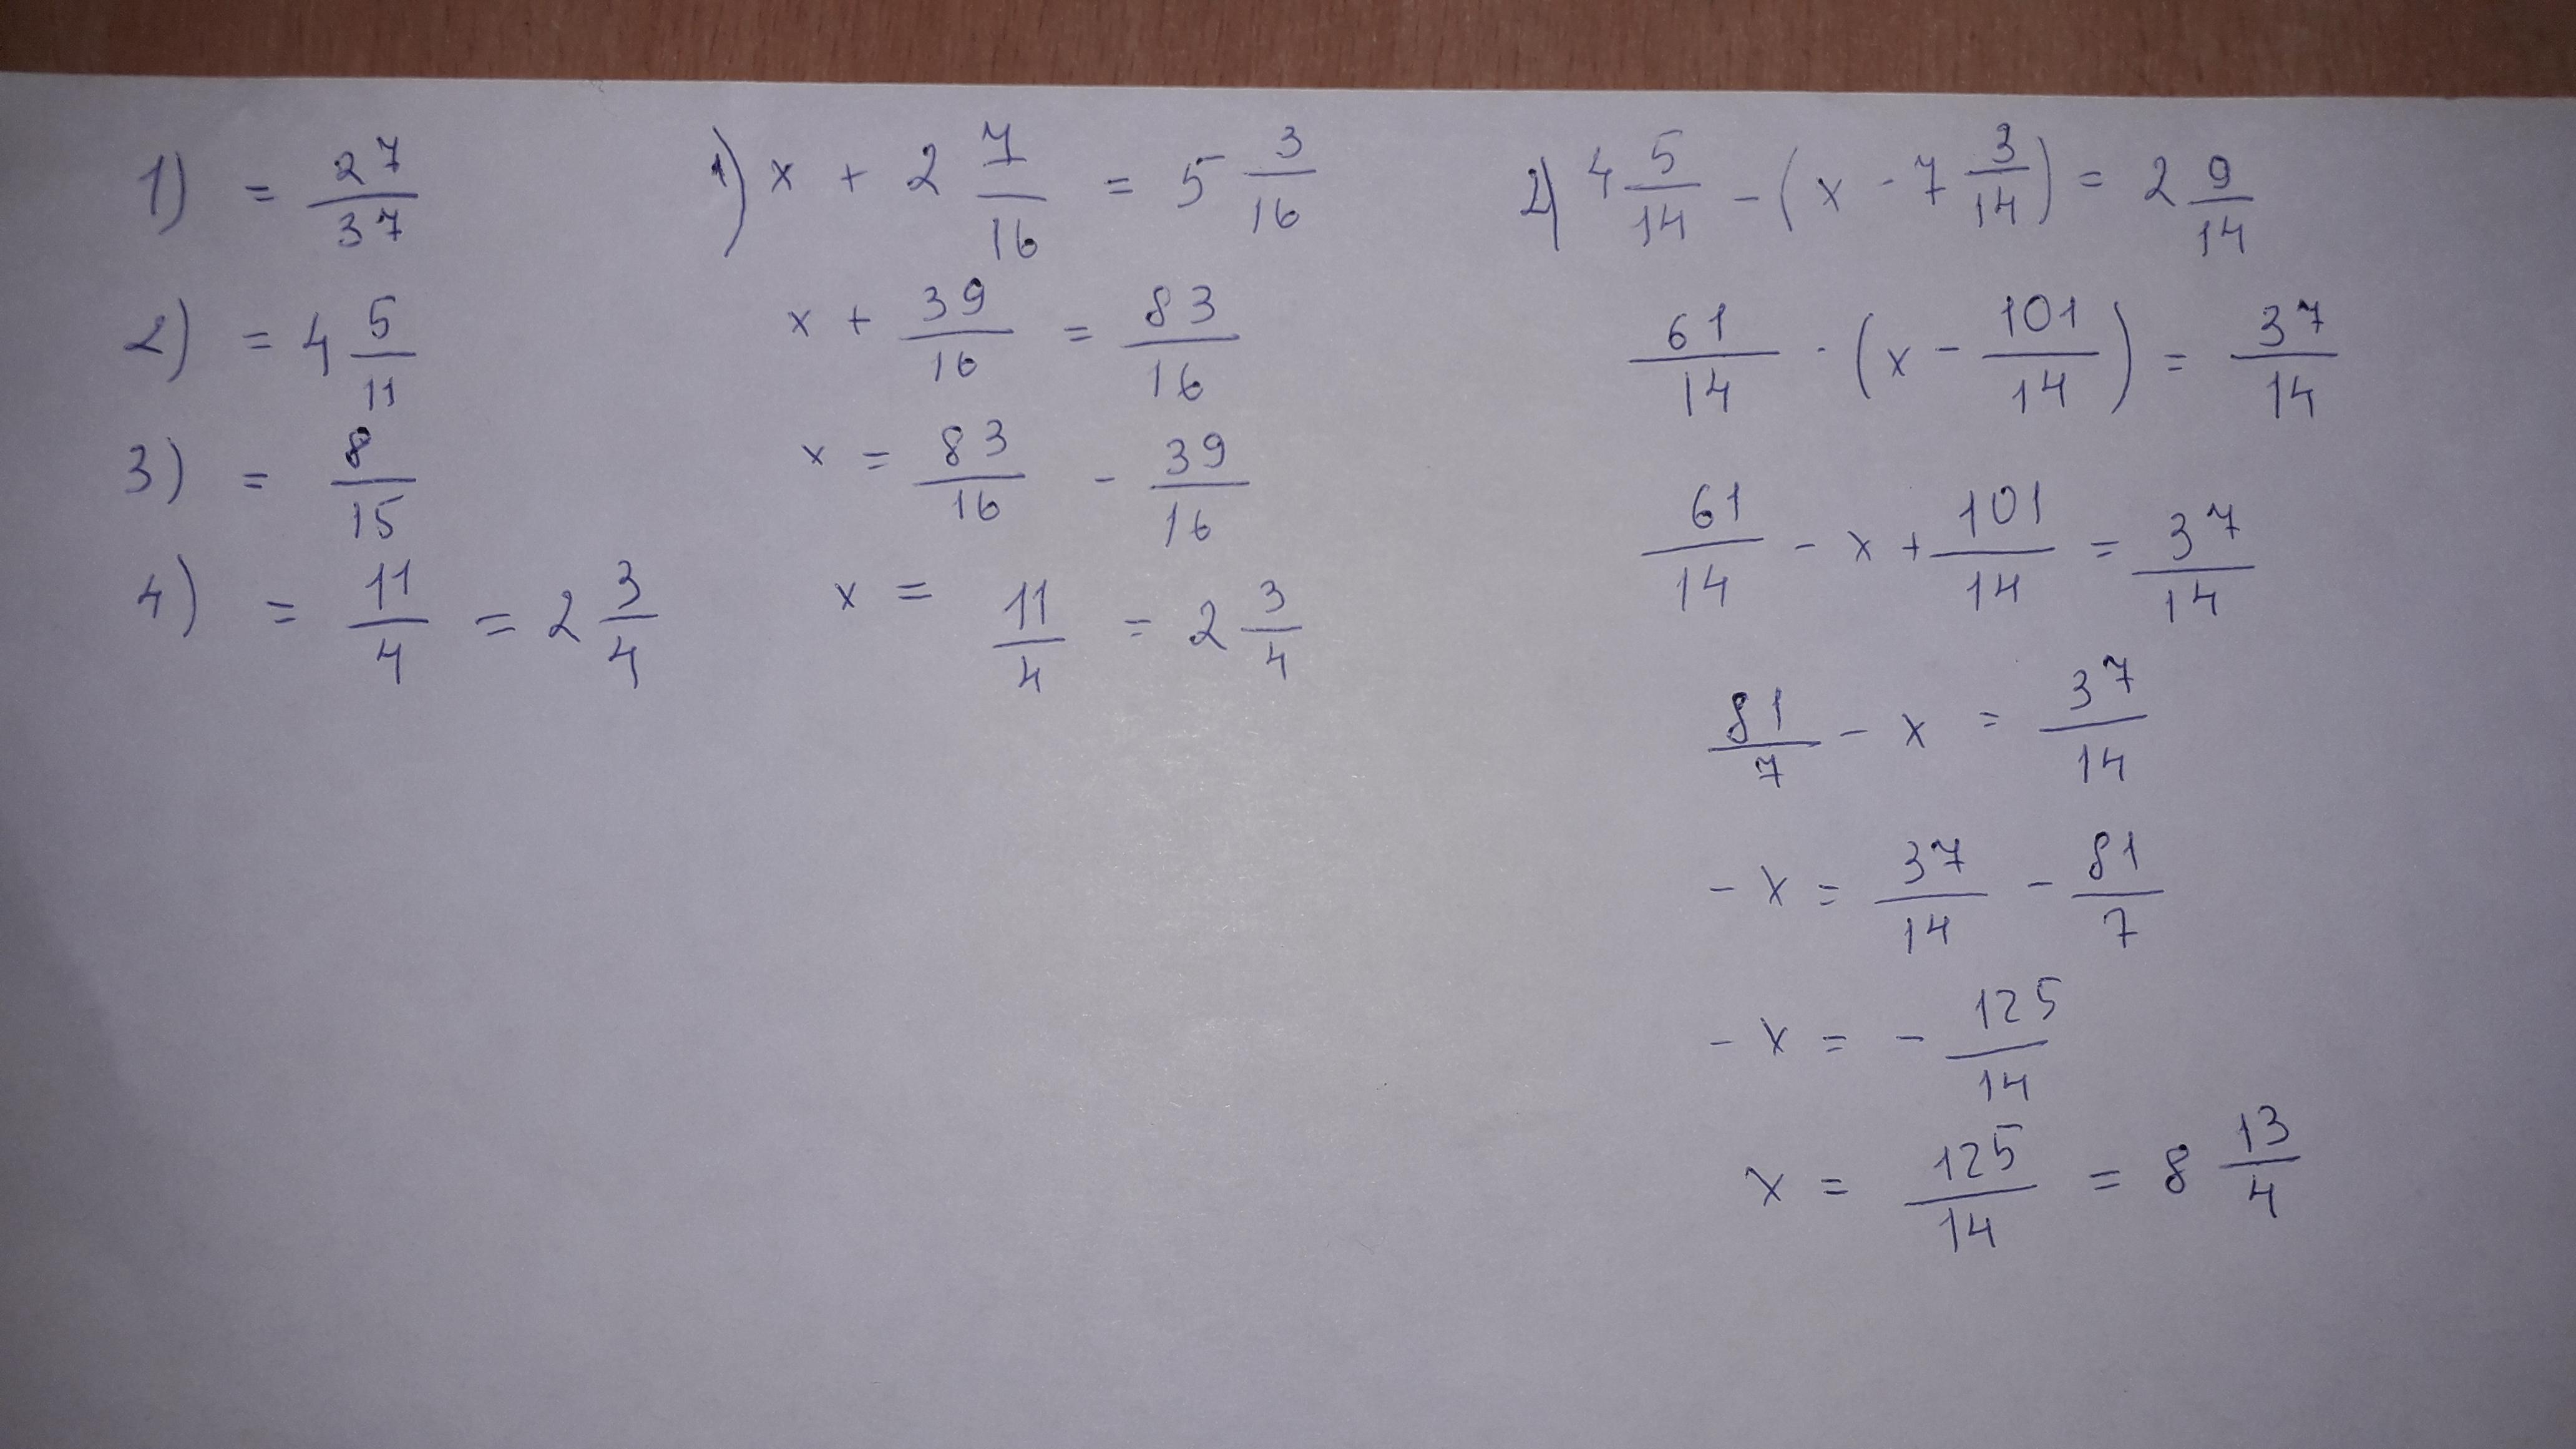 1) = 27/37
2) = 4 5/11
3) = 8/15
4) = 11/4 = 2 3/4
1) x + 2 7/16 = 5 3/16
x + 39/16 = 83/16
x = 83/16 - 39/16
x = 11/4 = 2 3/4
2) 4 5/14 - (x - 7 3/14) = 2 9/14
61/14 - (x - 101/14) = 37/14
61/14 - x + 101/14 = 37/14
81/7 - x = 37/14
- x = 37/14 - 81/7
- x = - 125/14
x = 125/14 = 8 13/4